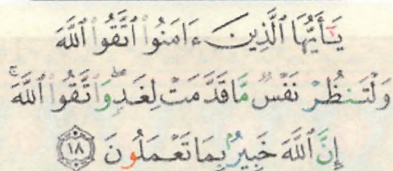 يَٰٓأَيُّهَا ٱلَّذِينَ ءَامَنُوا۟ ٱتَّقُوا۟ ٱللَّهَ
وَلْتَنظُرْ نَفْسٌۭ مَّا قَدَّمَتْ لِغَدٍۢ ۖ وَٱتَّقُوا۟ ٱللَّهَ ۚ
إِنَّ ٱللَّهَ خَبِيرٌۢ بِمَا تَعْمَلُونَ ١٨